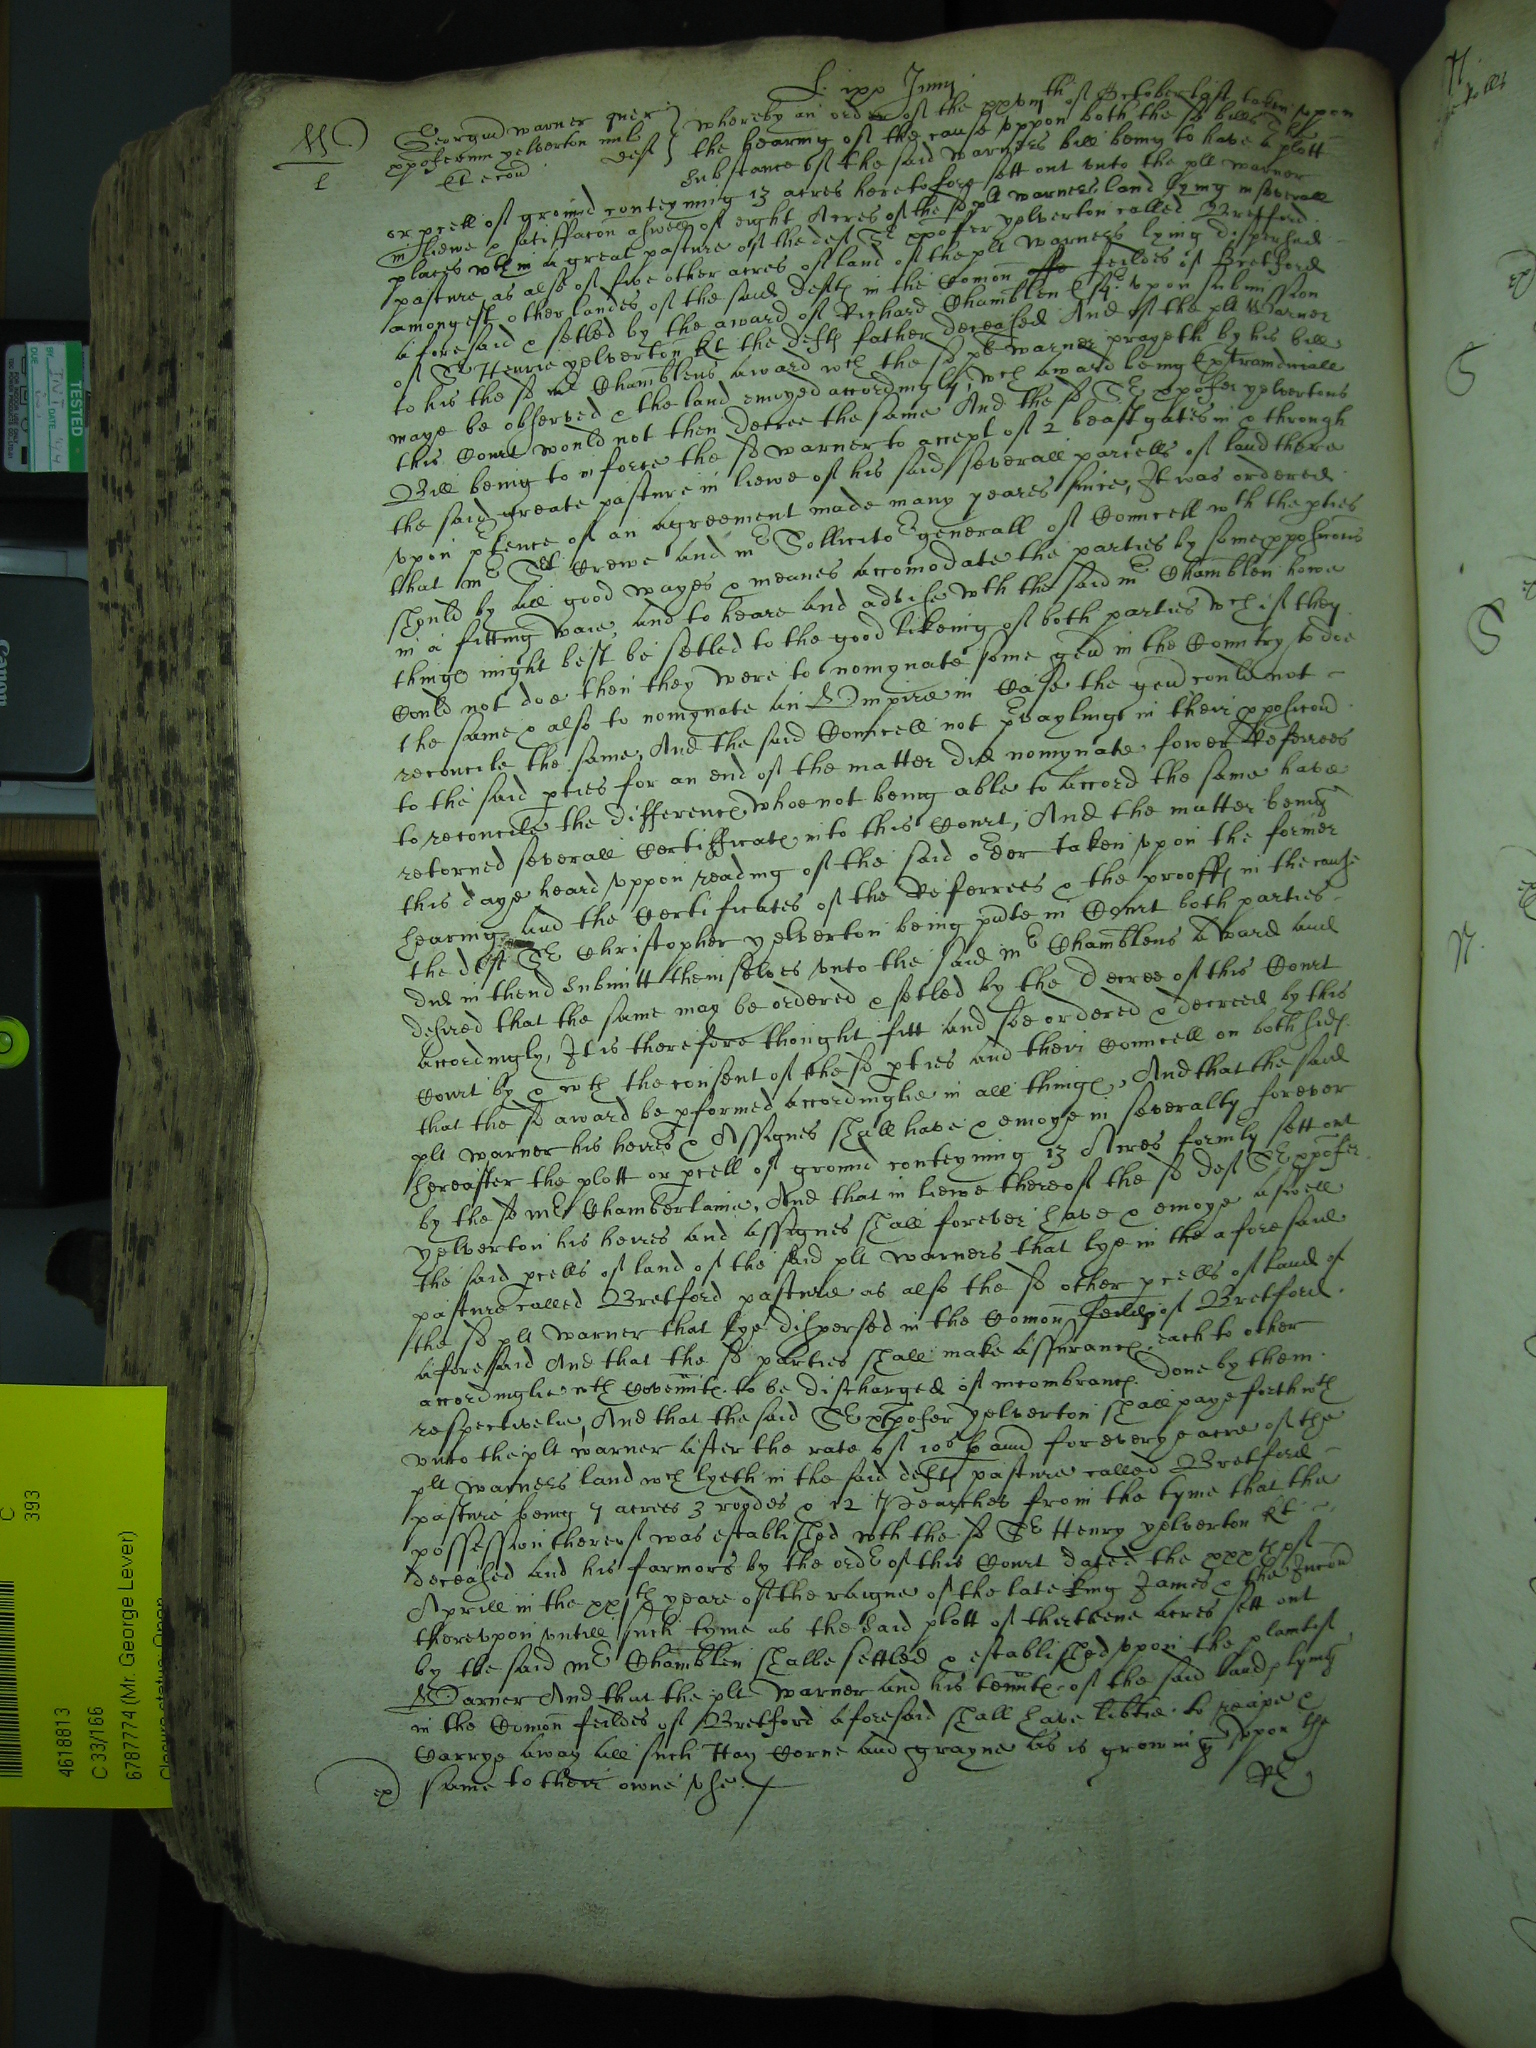 Georgius Warner quer
xpoferum yelverton mil
deft
Et econ
whereby an order of the xxvth of October last taken uppon
the hearing of the cause uppon both the sd bills & the
substance of the said warners bill being to have a plott
or pcell of ground conteyning 13 acres heretofore sett out unto the plt warner
in liewe & satisfacon aswell of eight Acres of the sd plt warners land lying in severall
places wthin a great pasture of the deft Sr xpofer yelverton called Bretford
pasture as also of five other acres of land of the plt warners lying dispersed
amongest other landes of the said defts in the Comon feildes of Bretford
aforesaid & setled by the award of Richard Chamblen Esqr upon submission
of Sr Henrie yelverton kt the defts father deceased And of the plt Warner
to his the sd mr Chamblens award wch the sd plt warner prayeth by his bill
maye be observed & the land enioyed accordingly, wch award being extraiudiciall
this Court would not then decree the same And the sd Sr xpofer yelvertons
Bill being to inforce the sd warner to accept of 2 beast gates in & through
the said greate pasture in liewe of his said severall parcells of land there
upon ptence of an agreement made many yeares since, It was ordered
that mr Srt Crewe and mr Sollicitor generall of Councell wth the pties
should by all good wayes & meanes accomodate the parties by some pposicons
in a fitting waie, and to heare and advise wth the said mr Chamblen howe
things might best be setled to the good likeing of both parties wch if they
Could not doe then they were to nomynate some gen in the Countrey to doe
the same & also to nomynate an Umpire in Case the gen could not
reconcile the same, And the said Councell not prvayling in their pposicon
to the said pties for an end of the matter did nomynate fower Referrees
to reconcile the difference whoe not being able to accord the same have
retorned severall Certifficates into this Court, And the matter being
this daye heard uppon reading of the said order taken upon the former
hearing and the Certificates of the Referrees & the prooffs in the cause
the deft Sr Christopher yelverton being pnte in Court both parties
did in thend submitt themselves unto the said mr Chamblens award and
desired that the same may be ordered & setled by the decree of this Court
accordingly, It is therefore thought fitt and soe ordered & decreed by this
Court by & wth the consent of the sd pties and their Councell on both sides
that the sd award be pformed accordinglie in all things, And that the said
plt warner his heires & Assignes shall have & enioye in severalty forever
hereafter the plott or pcell of ground conteyning 13 Acres formly sett out
by the sd mr Chamberlaine, And that in liewe thereof the sd deft Sr xpofer
yelverton his heires and assignes shall forever have & enioye aswell
the said pcells of land of the said plt warners that lye in the aforesaid
pasture called Bretford pasture as also the sd other pcells of land of
the sd plt warner that lye dispersed in the Comon feildes of Bretford
aforesaid And that the sd parties shall make assurance each to other
accordinglie wth Covennts to be discharged of incombrances done by them
respectivelie, And that the said Sr xpofer yelverton shall paye forthwth
unto the plt warner after the rate of 10s p ann for everye acre of the
plt warners land wch lyeth in the said defts pasture called Bretford
pasture being 7 acres 3 roodes & 12 Pearches from the tyme that the
possession thereof was established wth the sd Sr Henry yelverton kt
deceased and his farmors by the order of this Court dated the xxxth of
Aprill in the yeare of the raigne of the late king James & the
thereupon untill such tyme as the said plott of thirteene acres sett out
by the said mr Chamblen shalbe settled & established uppon the plantif
Warner And that the plt Warner and his tennts of the said land lying
in the Comon feildes of Bretford aforesaid shall have libtie to reape &
Carrye away all such Hay Corne and grayne as is growing upon the
same to their owne use.
TESTED
BY INIT
DATE
DUE
Canon
C
393
4618813
C 33/166
6787774 (Mr. George Lever)
Closure status: Open